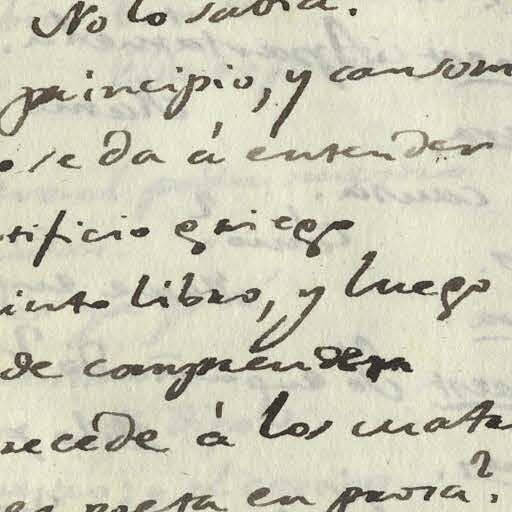 No lo sabia.
principio, y causom
se da á entender
tificio griego
into libro, y luego
de comprender
recede á los mata
poeta en prosa?